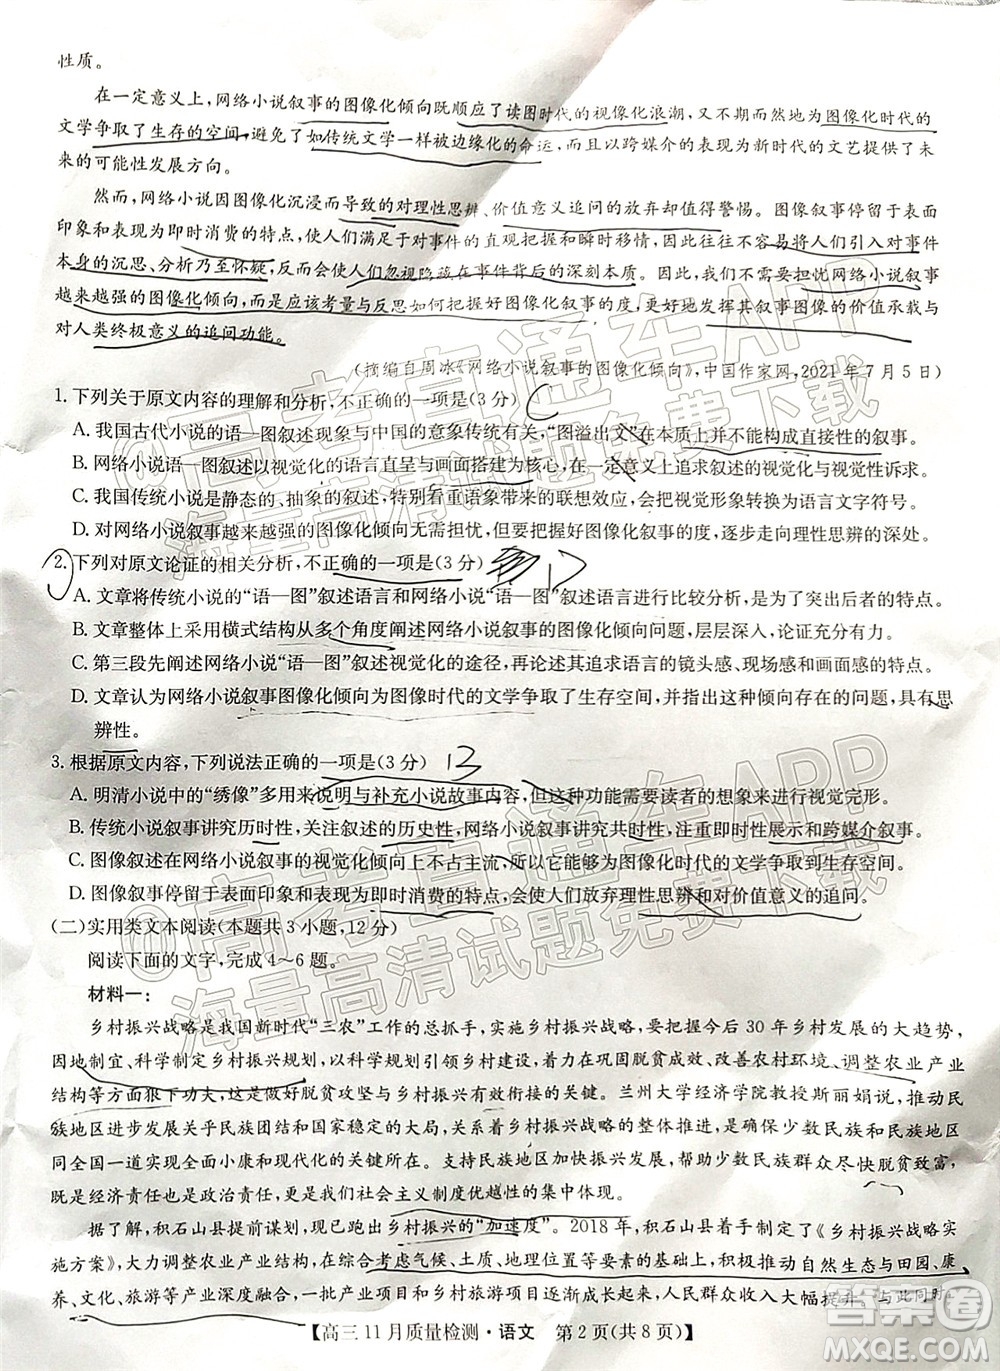 性质。
在一定意义上,网络小说叙事的图像化倾向既顺应了读图时代的视像化浪潮,又不期然地为图像化时代的
文学争取了生存的空间,避免了如传统文学一样被边缘化的命运,并以跨媒介的表现为新时代的文艺孕育了未
来的可能性发展方向。
然而,网络小说因图像化沉浸而导致的对理性思辨、价值意义追问的放弃却值得警惕。图像叙事停留于表面
印象和表现为即时消费的特点,使人们满足于对事件的直观把握和即时移情,太容易将人们引入对事件
本身的沉思、分析乃至怀疑,反而会使人们忽视隐藏在事件背后的深刻本质。因此,我们不必要担忧网络小说叙事
越来越强的图像化倾向,而是应该考量与反思如何把握好图像化叙事的度,更好地发挥其叙事图像的价值承载与
对人类终极意义的追问功能。
(摘编自周冰《网络小说叙事的图像化倾向》,中国作家网,2021年7月5日)
1. 下列关于原文内容的理解和分析,不正确的一项是(3分)
A. 我国古代小说的语—图叙述现象与中国的意象传统有关,“图溢出文”在本质上并不能构成直接性的叙事。
B. 网络小说语—图叙述以视觉化的语言直呈与画面搭建为核心,在一定意义上追求叙述的视觉化性诉求。
C. 我国传统小说是静态的、抽象的叙述,常借助语象带来的联想效应,会把视觉形象转换为语言文字符号。
D. 对网络小说叙事越来越强的图像化倾向无需担忧,但要把握好图像化叙事的度,警惕其放弃理性思辨之处。
2. 下列对原文论证的相关分析,不正确的一项是(3分)
A. 文章将传统小说的“语—图”叙述语言和网络小说的“语—图”叙述语言进行比较分析,是为了突出后者的特点。
B. 文章整体上采用横式结构从多个角度阐述网络小说叙事的图像化倾向问题,层层深入,论证充分有力。
C. 第三段先阐述网络小说“语—图”叙述视觉化的途径,再论述其追求语言的镜头感、现场感和画面感的特点。
D. 文章认为网络小说叙事图像化倾向为图像时代的文学争取了生存空间,并指出这种倾向存在的问题,具有思
辨性。
3. 根据原文内容,下列说法正确的一项是(3分)
A. 明清小说中的“绣像”多用来说明与补充小说故事内容,但这种功能需要读者的想象来进行视觉形象还原。
B. 传统小说叙事讲究历时性,关注叙述的历史性,网络小说叙事讲究共时性,注重即时性展示和跨媒介叙事。
C. 图文叙述在传统小说叙事中一直不占主流,所以没能够为图像化时代的文学争取到生存空间。
D. 图像叙事停留于表面印象和表现为即时消费的特点,必然会使人们放弃理性思辨和对价值意义的追问。
(二)实用类文本阅读(本题共3小题,12分)
阅读下面的文字,完成4~6题。
材料一:
乡村振兴战略是我国新时代“三农”工作的总抓手,实施乡村振兴战略,要把握今后30年乡村发展的大趋势,
因地制宜、科学制定乡村振兴规划,以科学规划引领乡村建设,在巩固脱贫成效、改善农村环境、调整农业产业
结构等方面狠下功夫,这是做好脱贫攻坚与乡村振兴有效衔接的关键。兰州大学经济学院教授斯丽娟说,推动民
族地区乡村发展关乎脱贫和稳定的大局,民族地区实施乡村振兴战略,是确保少数民族和民族地区
同全国一道实现全面小康和现代化的关键所在。支持民族地区乡村振兴发展,帮助各族群众尽快脱贫致富,
既是党的责任和使命,也是社会主义制度优越性的集中体现。
据了解,积石山县提前谋划,现已跑出乡村振兴的“加速度”。2018年,积石山县着手制定了《乡村振兴战略实
施方案》,大力调整农业产业结构,在综合考虑气候、土质、地理位置等要素的基础上,积极推动自然生态与田园、康
养、文化、旅游等产业深度融合,一批产业项目逐渐形成,农民收入大幅提升。与此同时,
【高三11月质量检测·语文 第2页(共8页)】
@高考直通车APP
海量高清试题免费下载
@高考直通车APP
海量高清试题免费下载
答案圈
MXQE.COM